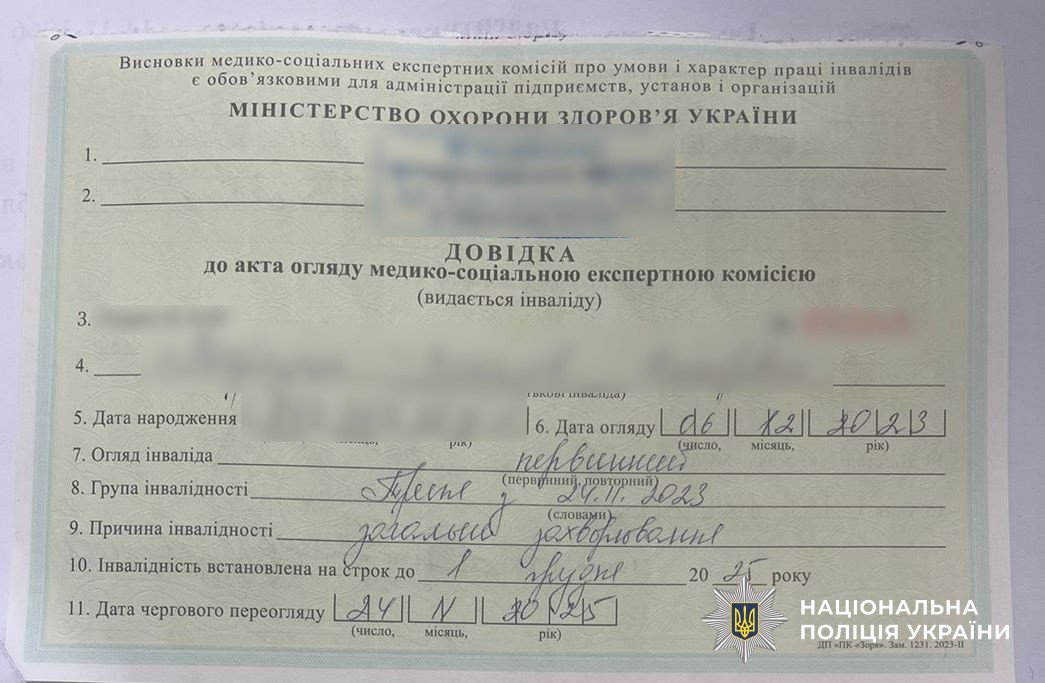 Висновки медико-соціальних експертних комісій про умови і характер праці інвалідів
є обов’язковими для адміністрації підприємств, установ і організацій
МІНІСТЕРСТВО ОХОРОНИ ЗДОРОВ’Я УКРАЇНИ
1.
2.
ДОВІДКА
до акта огляду медико-соціальною експертною комісією
(видається інваліду)
3.
4.
5. Дата народження 6. Дата огляду 06 12 2023
(число, місяць, рік)
7. Огляд інваліда первинний
(первинний, повторний)
8. Група інвалідності Третя з 24.11.2023
(словами)
9. Причина інвалідності загальне захворювання
10. Інвалідність встановлена на строк до 1 грудня 2025 року
11. Дата чергового переогляду 24 2025
(число, місяць, рік)
НАЦІОНАЛЬНА
ПОЛІЦІЯ УКРАЇНИ
ДП «ПК «Зоря». Зам. 1231. 2023-ІІ